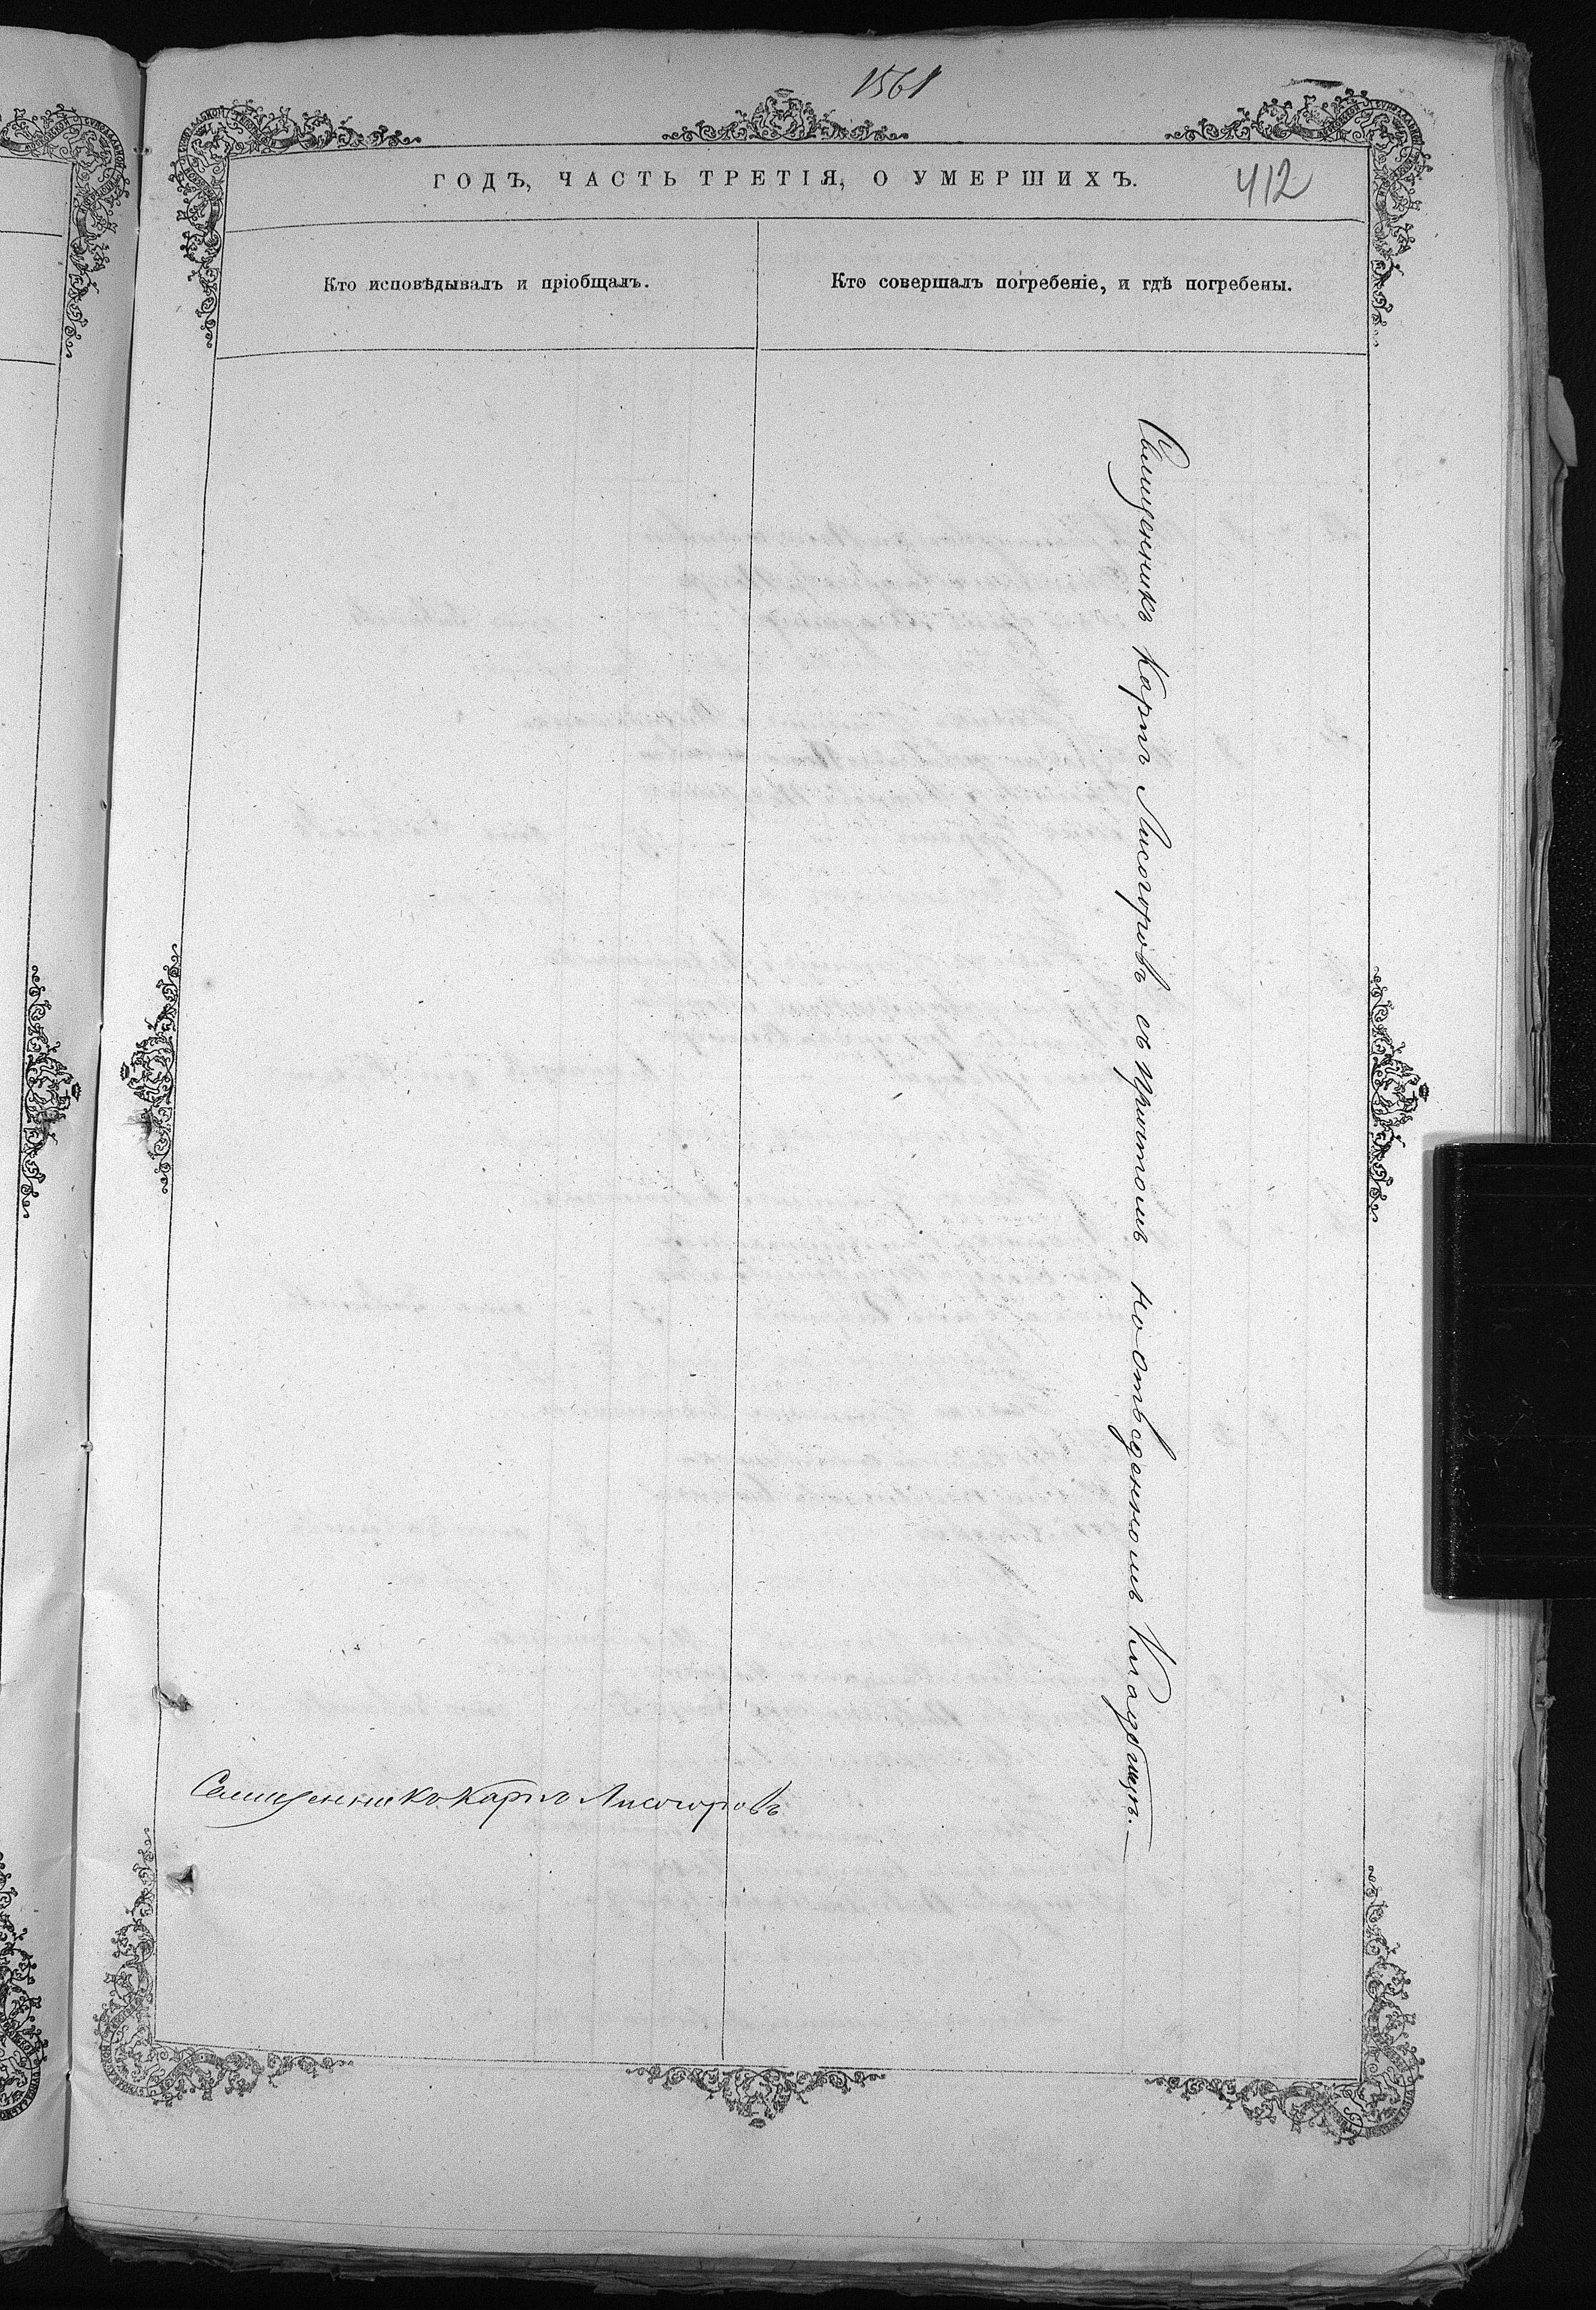 1561
ГОДЪ, ЧАСТЬ ТРЕТІЯ, О УМЕРШИХЪ.
412
Кто исповѣдывалъ и пріобщалъ.
Кто совершалъ погребеніе, и гдѣ погребены.
Священникъ Карпъ Лисогоровъ съ причтомъ на отведенномъ Кладбищѣ.
Священникъ Карпъ Лисогоровъ